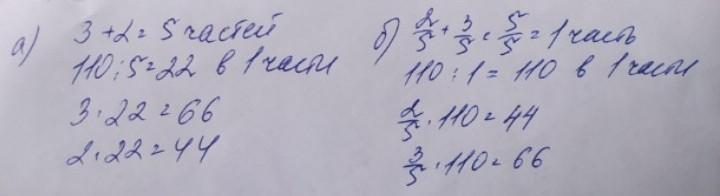 а) 3+2=5 частей
110:5=22 в 1 части
3·22=66
2·22=44
б) 2/5+3/5=5/5=1 часть
110:1=110 в 1 части
2/5·110=44
3/5·110=66